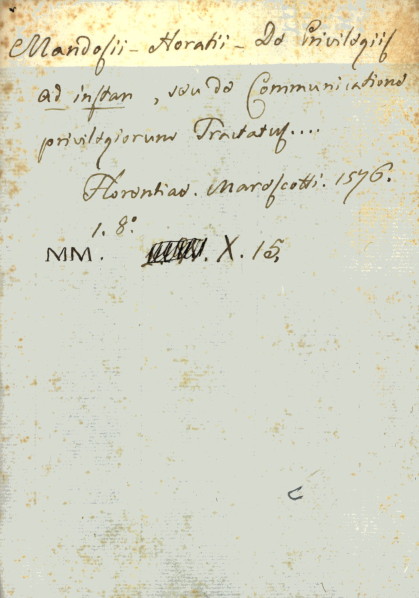 Mandosii - Horatii - De Privilegiis
ad instar, seu de Communicatione
privilegiorum Tractatus....
Florentiae. Marescotti. 1576.
1. 8.º
MM. X. 15.